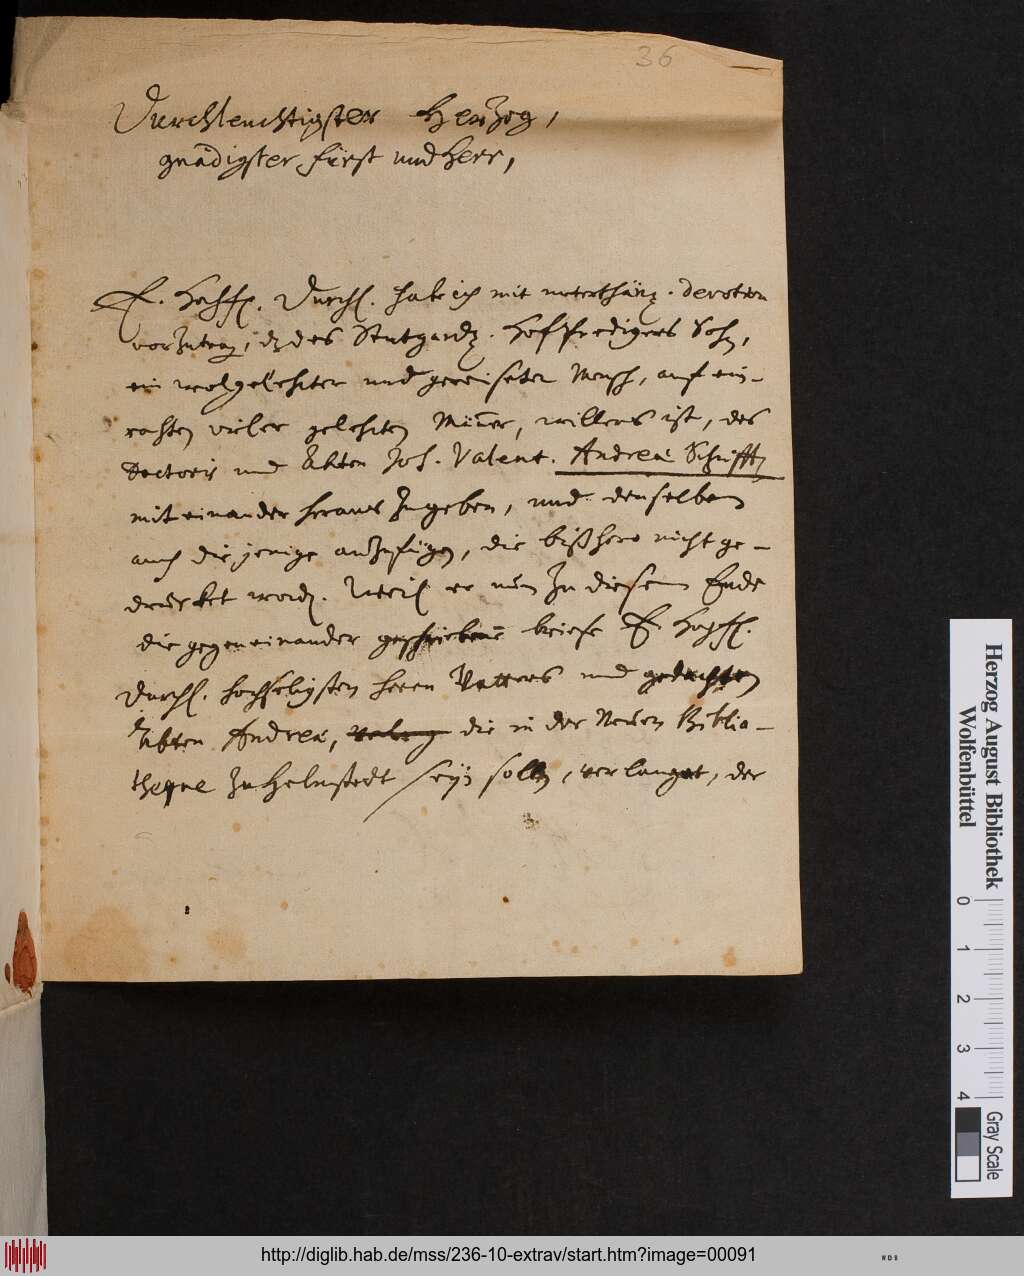 36
Durchleuchtigster Herzog,
gnädigster Fürst und Herr,
E. Hochf. Durchl. habe ich mit unterthänig. devotion
vorzutrag, dz des Stutgardz. Hofpredigers Sohn,
ein wolgelehrter und gereiseter Mensch, auf ein-
rathen vieler gelehrten Mäner, willens ist, des
Doctoris und Abten Joh. Valent. Andreä Schrifften
mit einander heraus zugeben, und denselben
auch die jenige anzufügen, die bißhero nicht ge-
drucket word. Weil er nun zu diesem Ende
die gegen einander geschriebene briefe E. Hochf.
Durchl. hochseligsten Herrn Vatters und gedachten
Abten Andreä, die in der Neuen Biblio-
theque zu Helmstedt seyn sollen, verlanget, der
Herzog August Bibliothek
Wolfenbüttel
0 1 2 3 4
Gray Scale
http://diglib.hab.de/mss/236-10-extrav/start.htm?image=00091